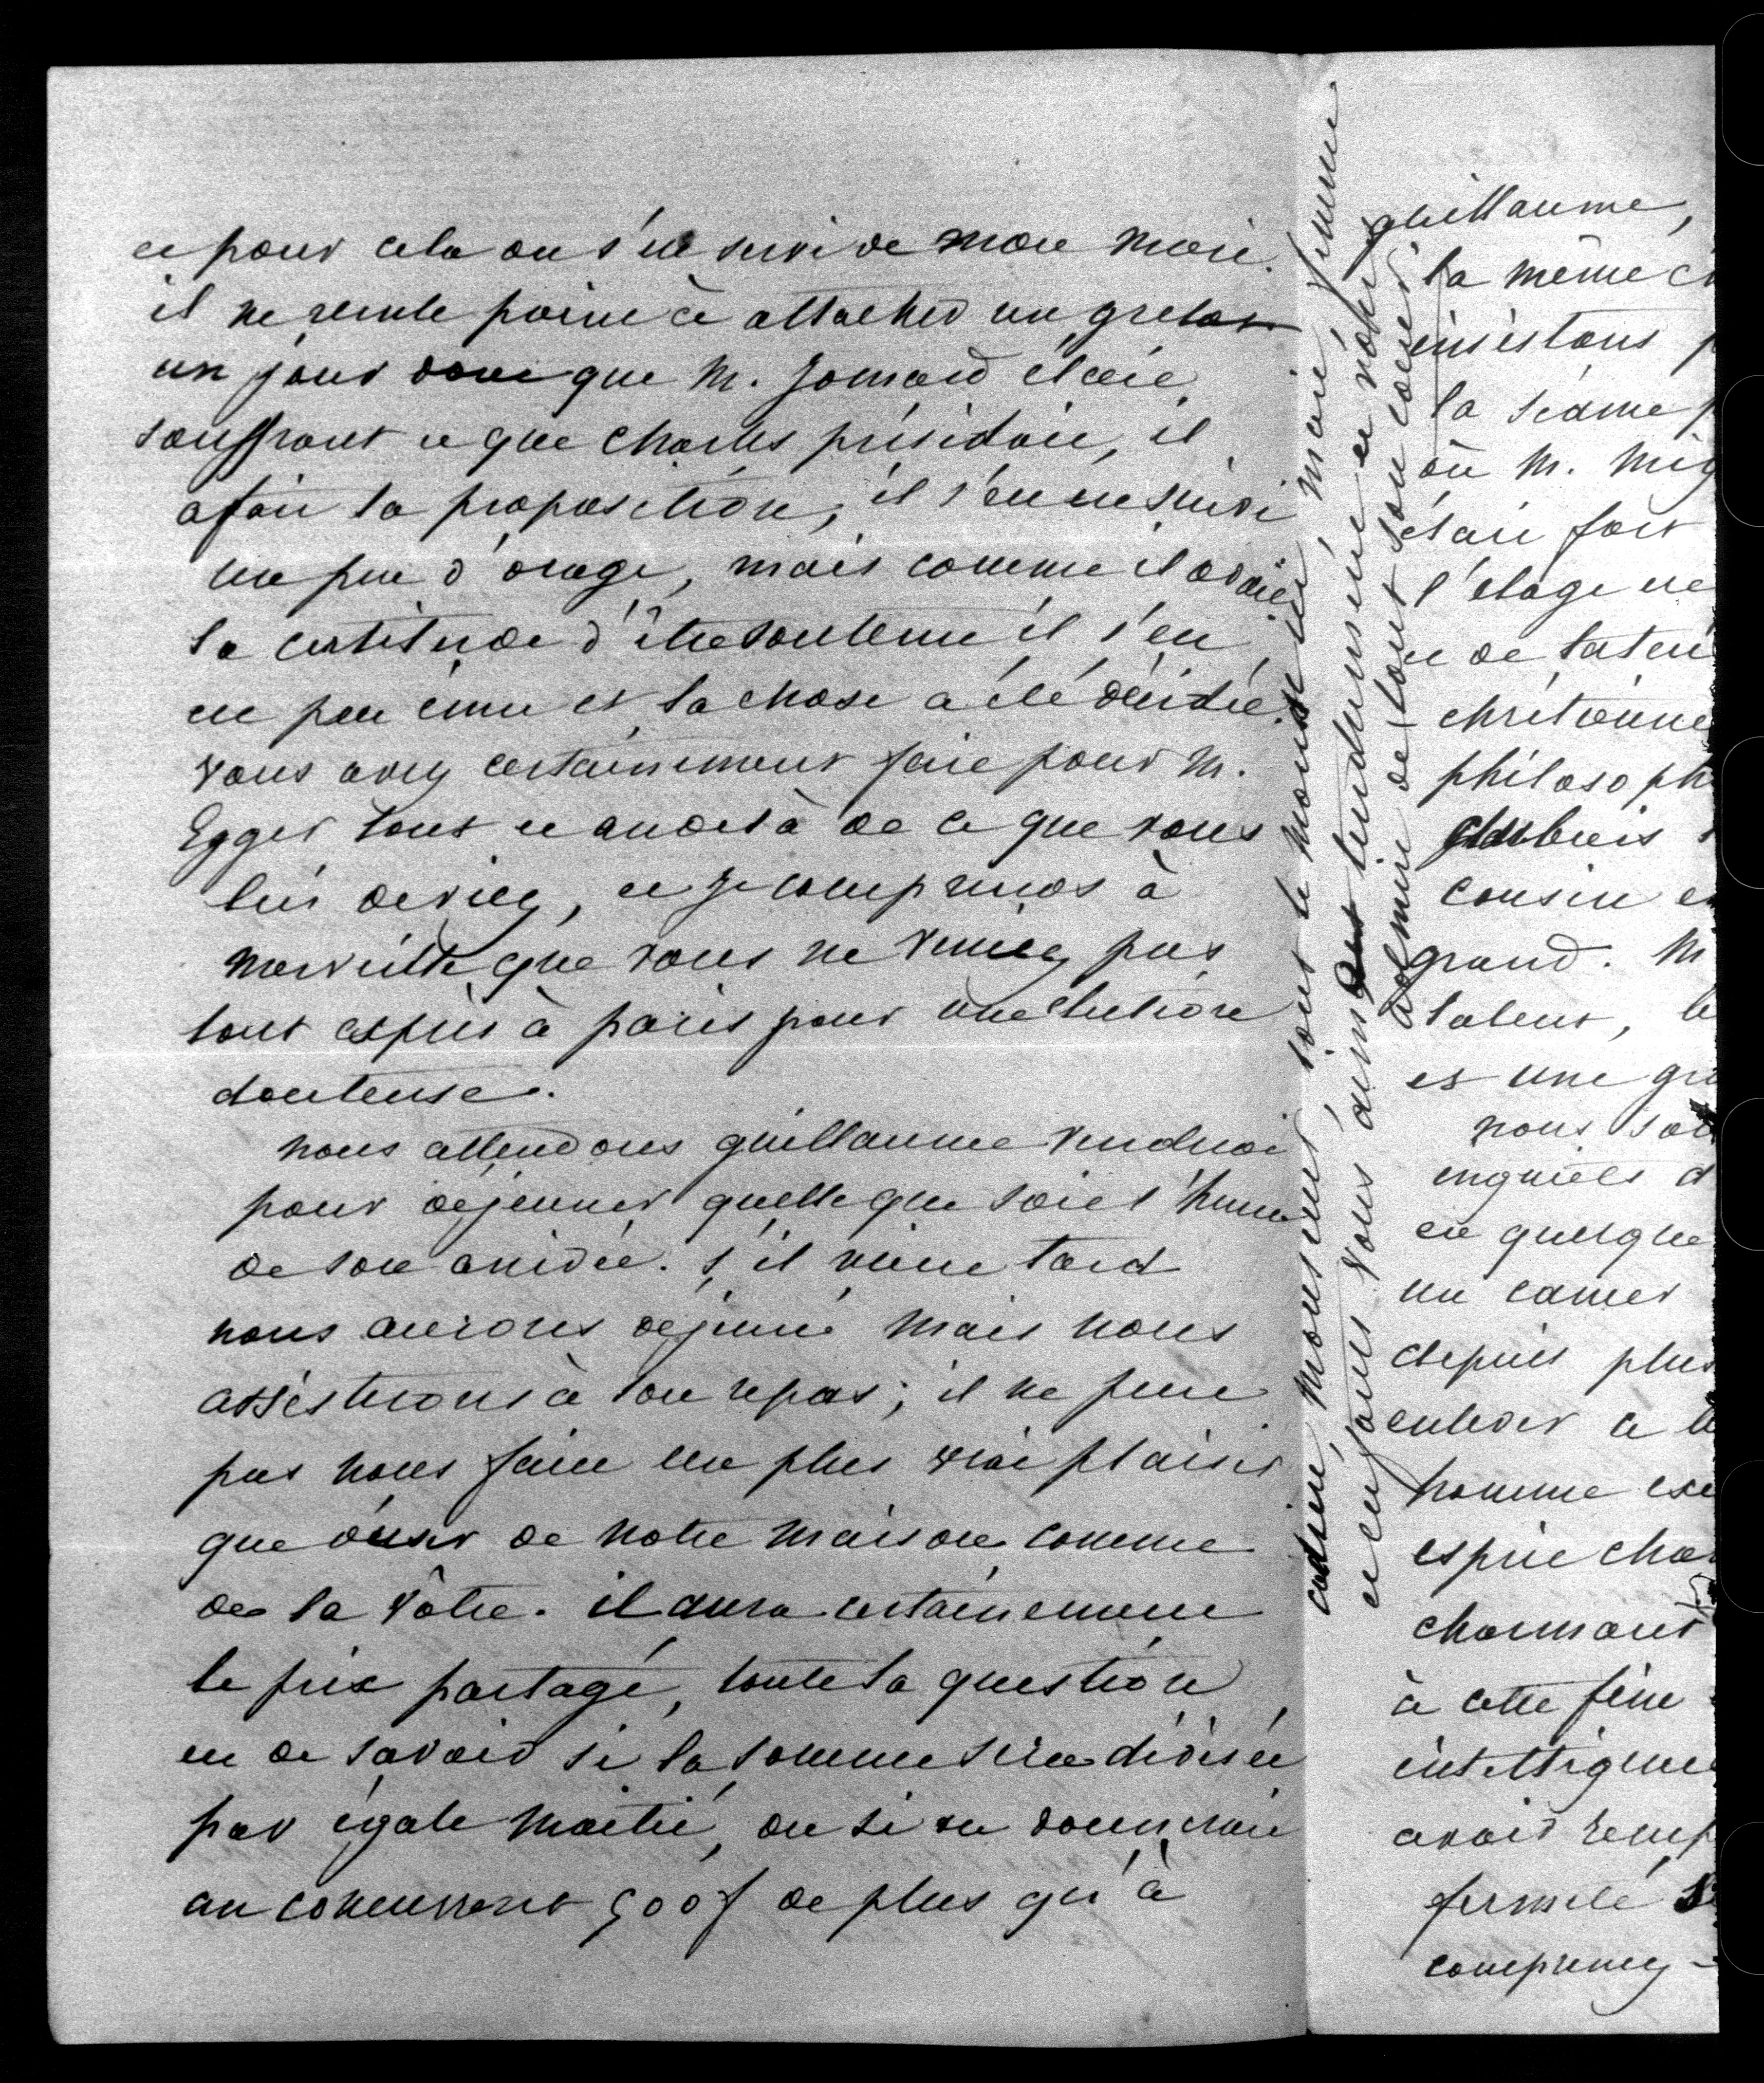 et pour cela on s'est servi de mon mari.
il ne recule point à attacher un grelot
un jour donc que M. Jomard était
souffrant et que Charles présidait, il
a fait la proposition, il s'en est suivi
un peu d'orage, mais comme il avait
la certitude d'être soutenu il s'en
est peu ému et la chose a été décidée.
vous avez certainement fait pour M.
Egger tout et au delà de ce que vous
lui deviez, et je comprends à
merveille que vous ne veniez pas
tout exprès à paris pour une élection
douteuse.
nous attendons guillaume vendredi
pour déjeuner quelle que soit l'heure
de son arrivée. s'il vient tard
nous aurons déjeuné mais nous
assisterons à son repas; il ne peut
pas nous faire un plus vrai plaisir
que d'user de notre maison comme
de la vôtre. il aura certainement
le prix partagé, toute la question
est de savoir si la somme sera divisée
par égale moitié, ou si on donnerait
au concurrent 500f de plus qu'à
guillaume,
la même
insistons
la séance
où M. Mig
était fort
l'éloge
et de
chrétienne
philosoph
cousin
grand. M
talent,
et une
nous
inquiets d
en quelque
un cancer
depuis plus
enlever
homme
esprit cha
charmant
à cette fine
intelligence
avoir
fermeté
comprenez
adieu, monsieur, tout le monde ici, mari, femme
et enfans vous aiment tendrement et notre
de tout son coeur